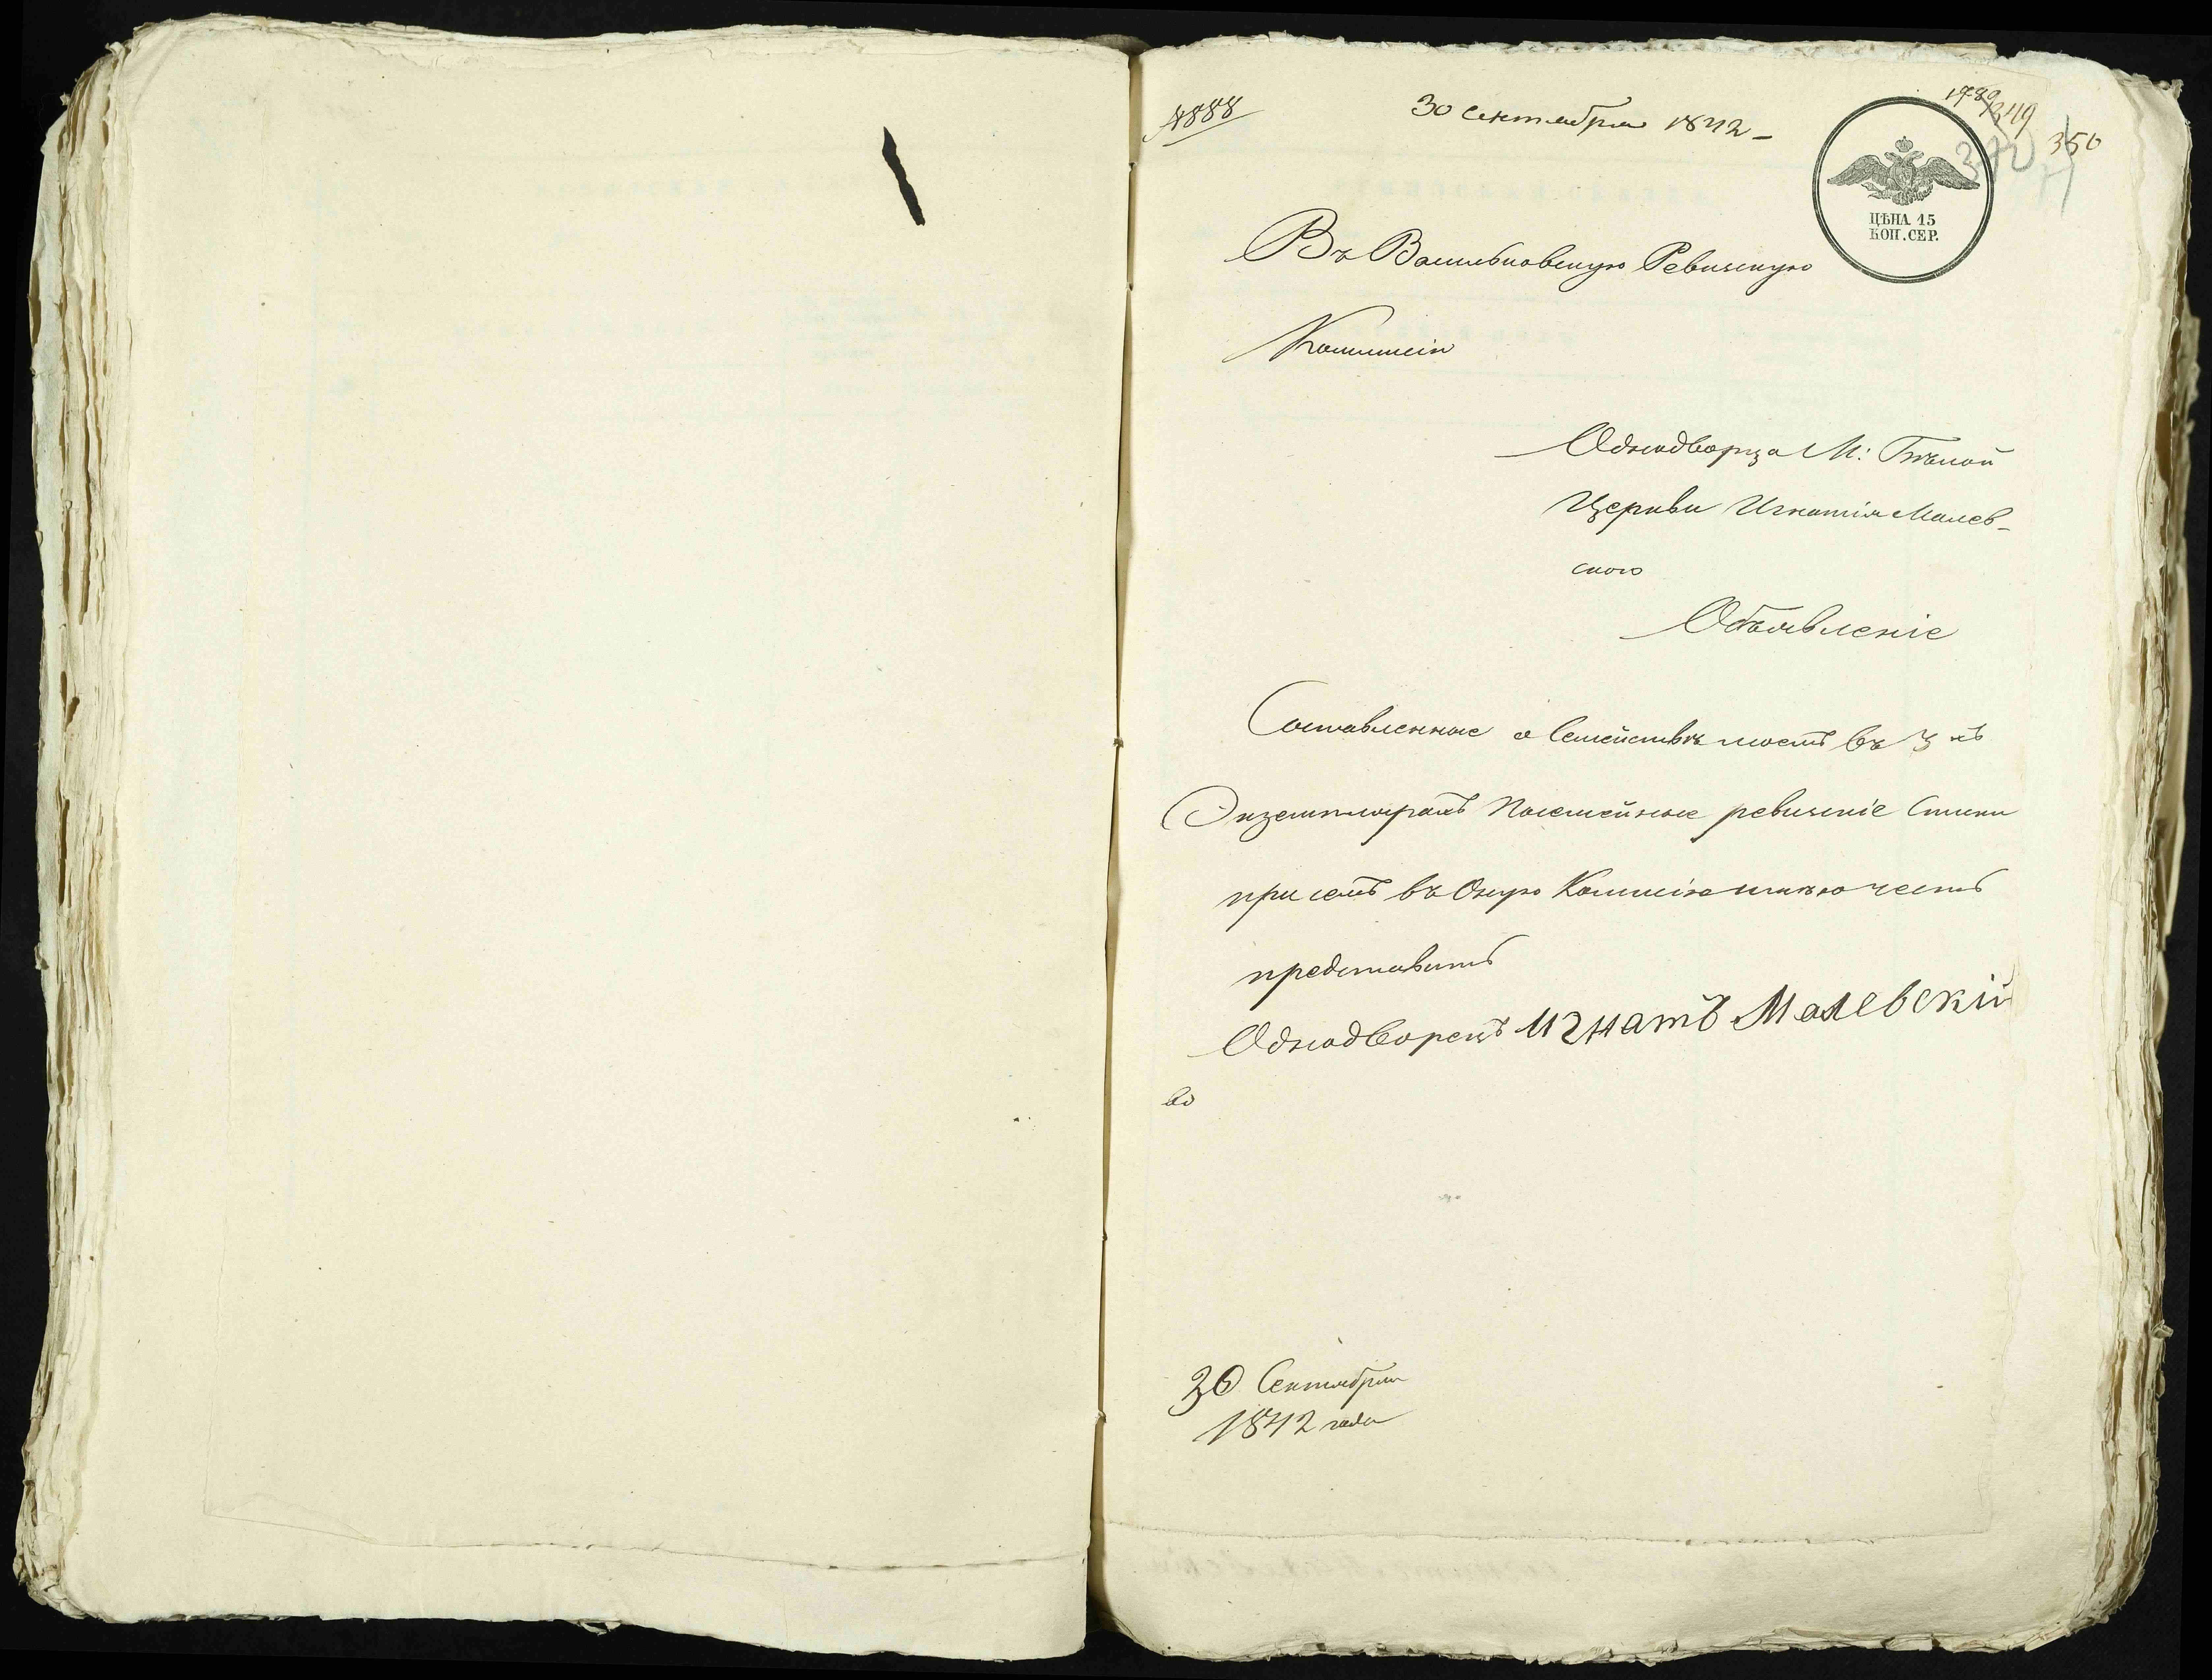 №888
30 Сентября 1842 –
1780
349
350
372
ЦѢНА 15
КОП. СЕР.
Въ Васильковскую Ревизскую
Коммисію
Однодворца М: Бѣлой
Церкви Игнатія Малев-
ского
Объявленіе
Составленные о Семействѣ моемъ въ 3 хъ
Экземплярахъ Посемейные ревизскіе Списки
при семъ въ Оную Коммисію имѣю честь
представить
Однодворецъ Игнатъ Малевскій
30 Сентября
1842 года